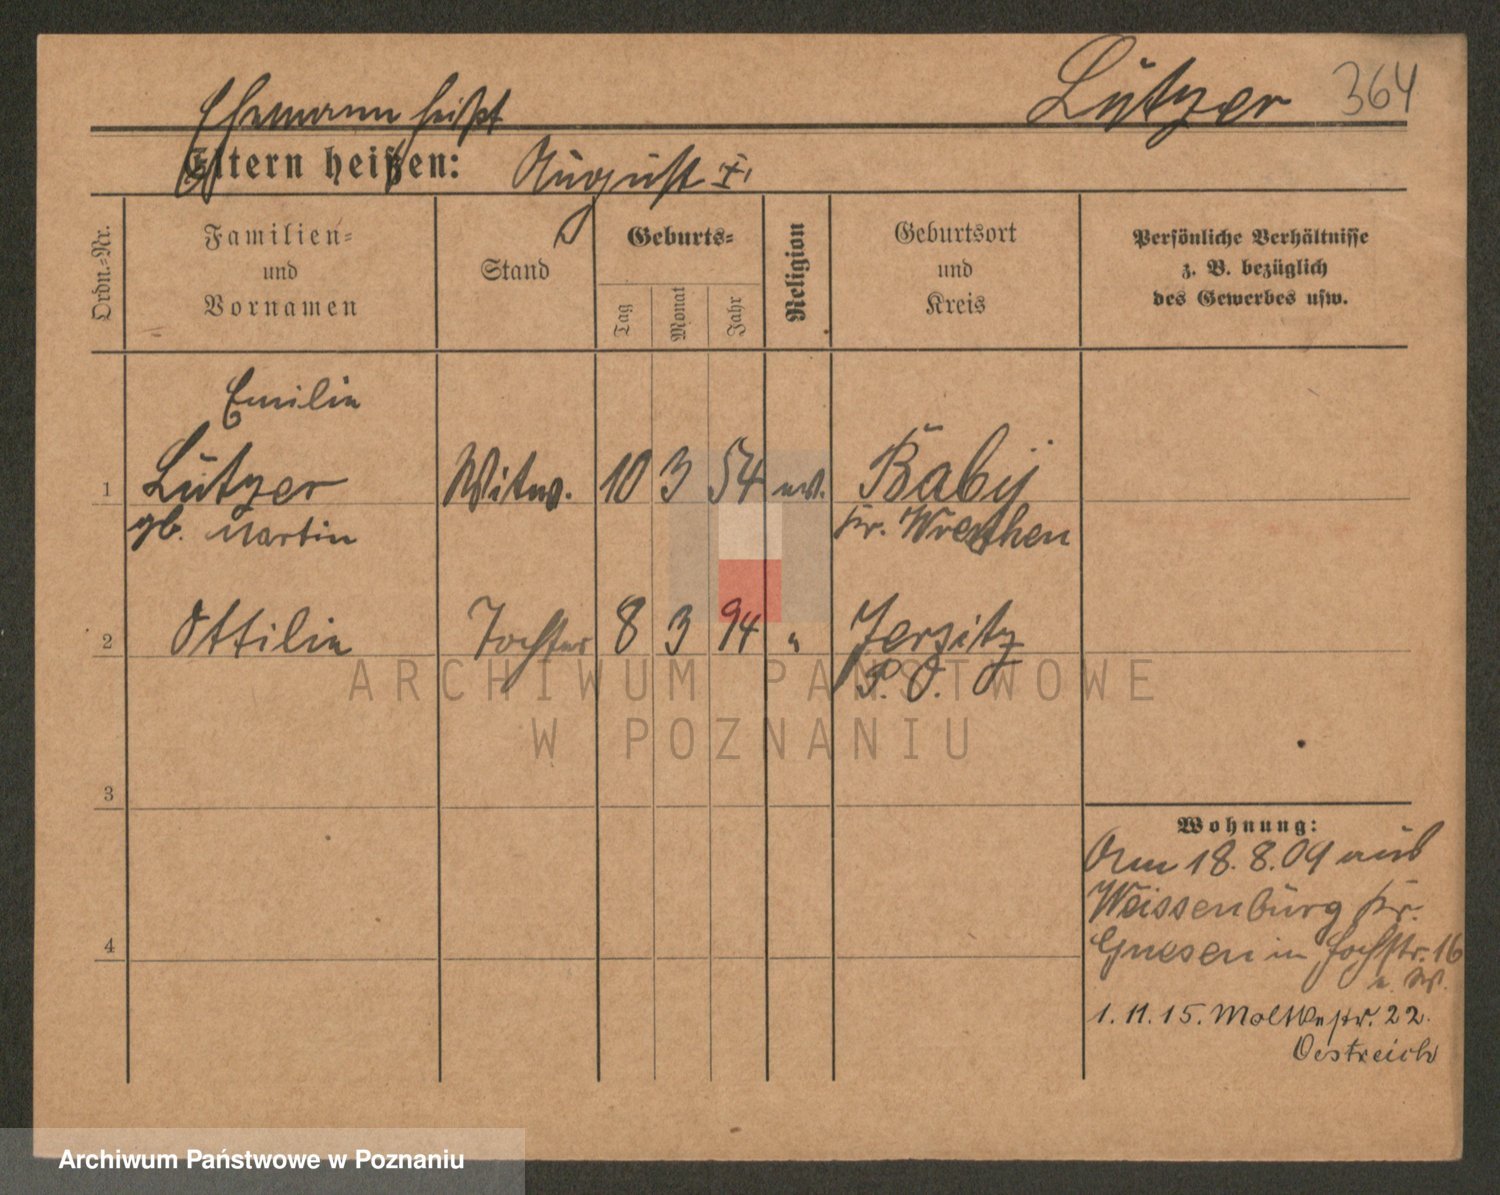 Lützer 364
Ehemann heißt
Eltern heißen: August †.
Ordn.-Nr.
Familien-
und
Vornamen
Stand
Geburts-
Tag
Monat
Jahr
Religion
Geburtsort
und
Kreis
Persönliche Verhältnisse
z. B. bezüglich
des Gewerbes usw.
Emilie
1 Lützer Witw. 10 3 54 ev. Babij
gb. Martin Kr. Wreschen
2 Ottilie Tochter 8 3 94 " Jersitz
P. O.
3
4
Wohnung:
Am 18.8.09 aus
Weissenburg Kr.
Gnesen in Hochstr. 16
1.11.15. Moltkestr. 22.
Oestreich
ARCHIWUM PAŃSTWOWE
W POZNANIU
Archiwum Państwowe w Poznaniu